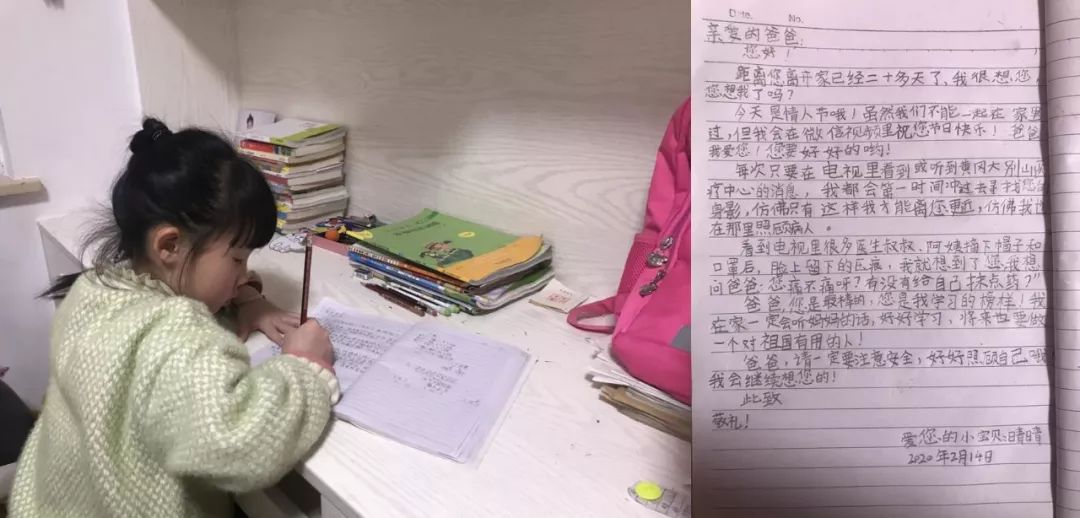 Date. No.
亲爱的爸爸:
您好!
距离您离开家已经二十多天了、我很想您,
您想我了吗?
今天是情人节哦!虽然我们不能一起在家里
过,但我会在微信视频里祝您节日快乐!爸爸
我爱您!您要好好的哟!
每次只要在电视里看到或听到黄冈大别山医
疗中心的消息,我都会第一时间冲过去寻找您的
身影,仿佛只有这样我才能离您更近,仿佛我也
在那里照顾病人。
看到电视里很多医生叔叔、阿姨摘下帽子和
口罩后,脸上留下的压痕,我就想到了您,我想
问爸爸:您痛不痛呀?有没有给自己抹点药?”
爸爸,您是最棒的,您是我学习的榜样!我
在家一定会听妈妈的话,好好学习、将来也要做
一个对祖国有用的人!
爸爸,请一定要注意安全,好好照顾自己,
我会继续想您的!
此致
敬礼!
爱您的小宝贝:晴晴
2020年2月14日